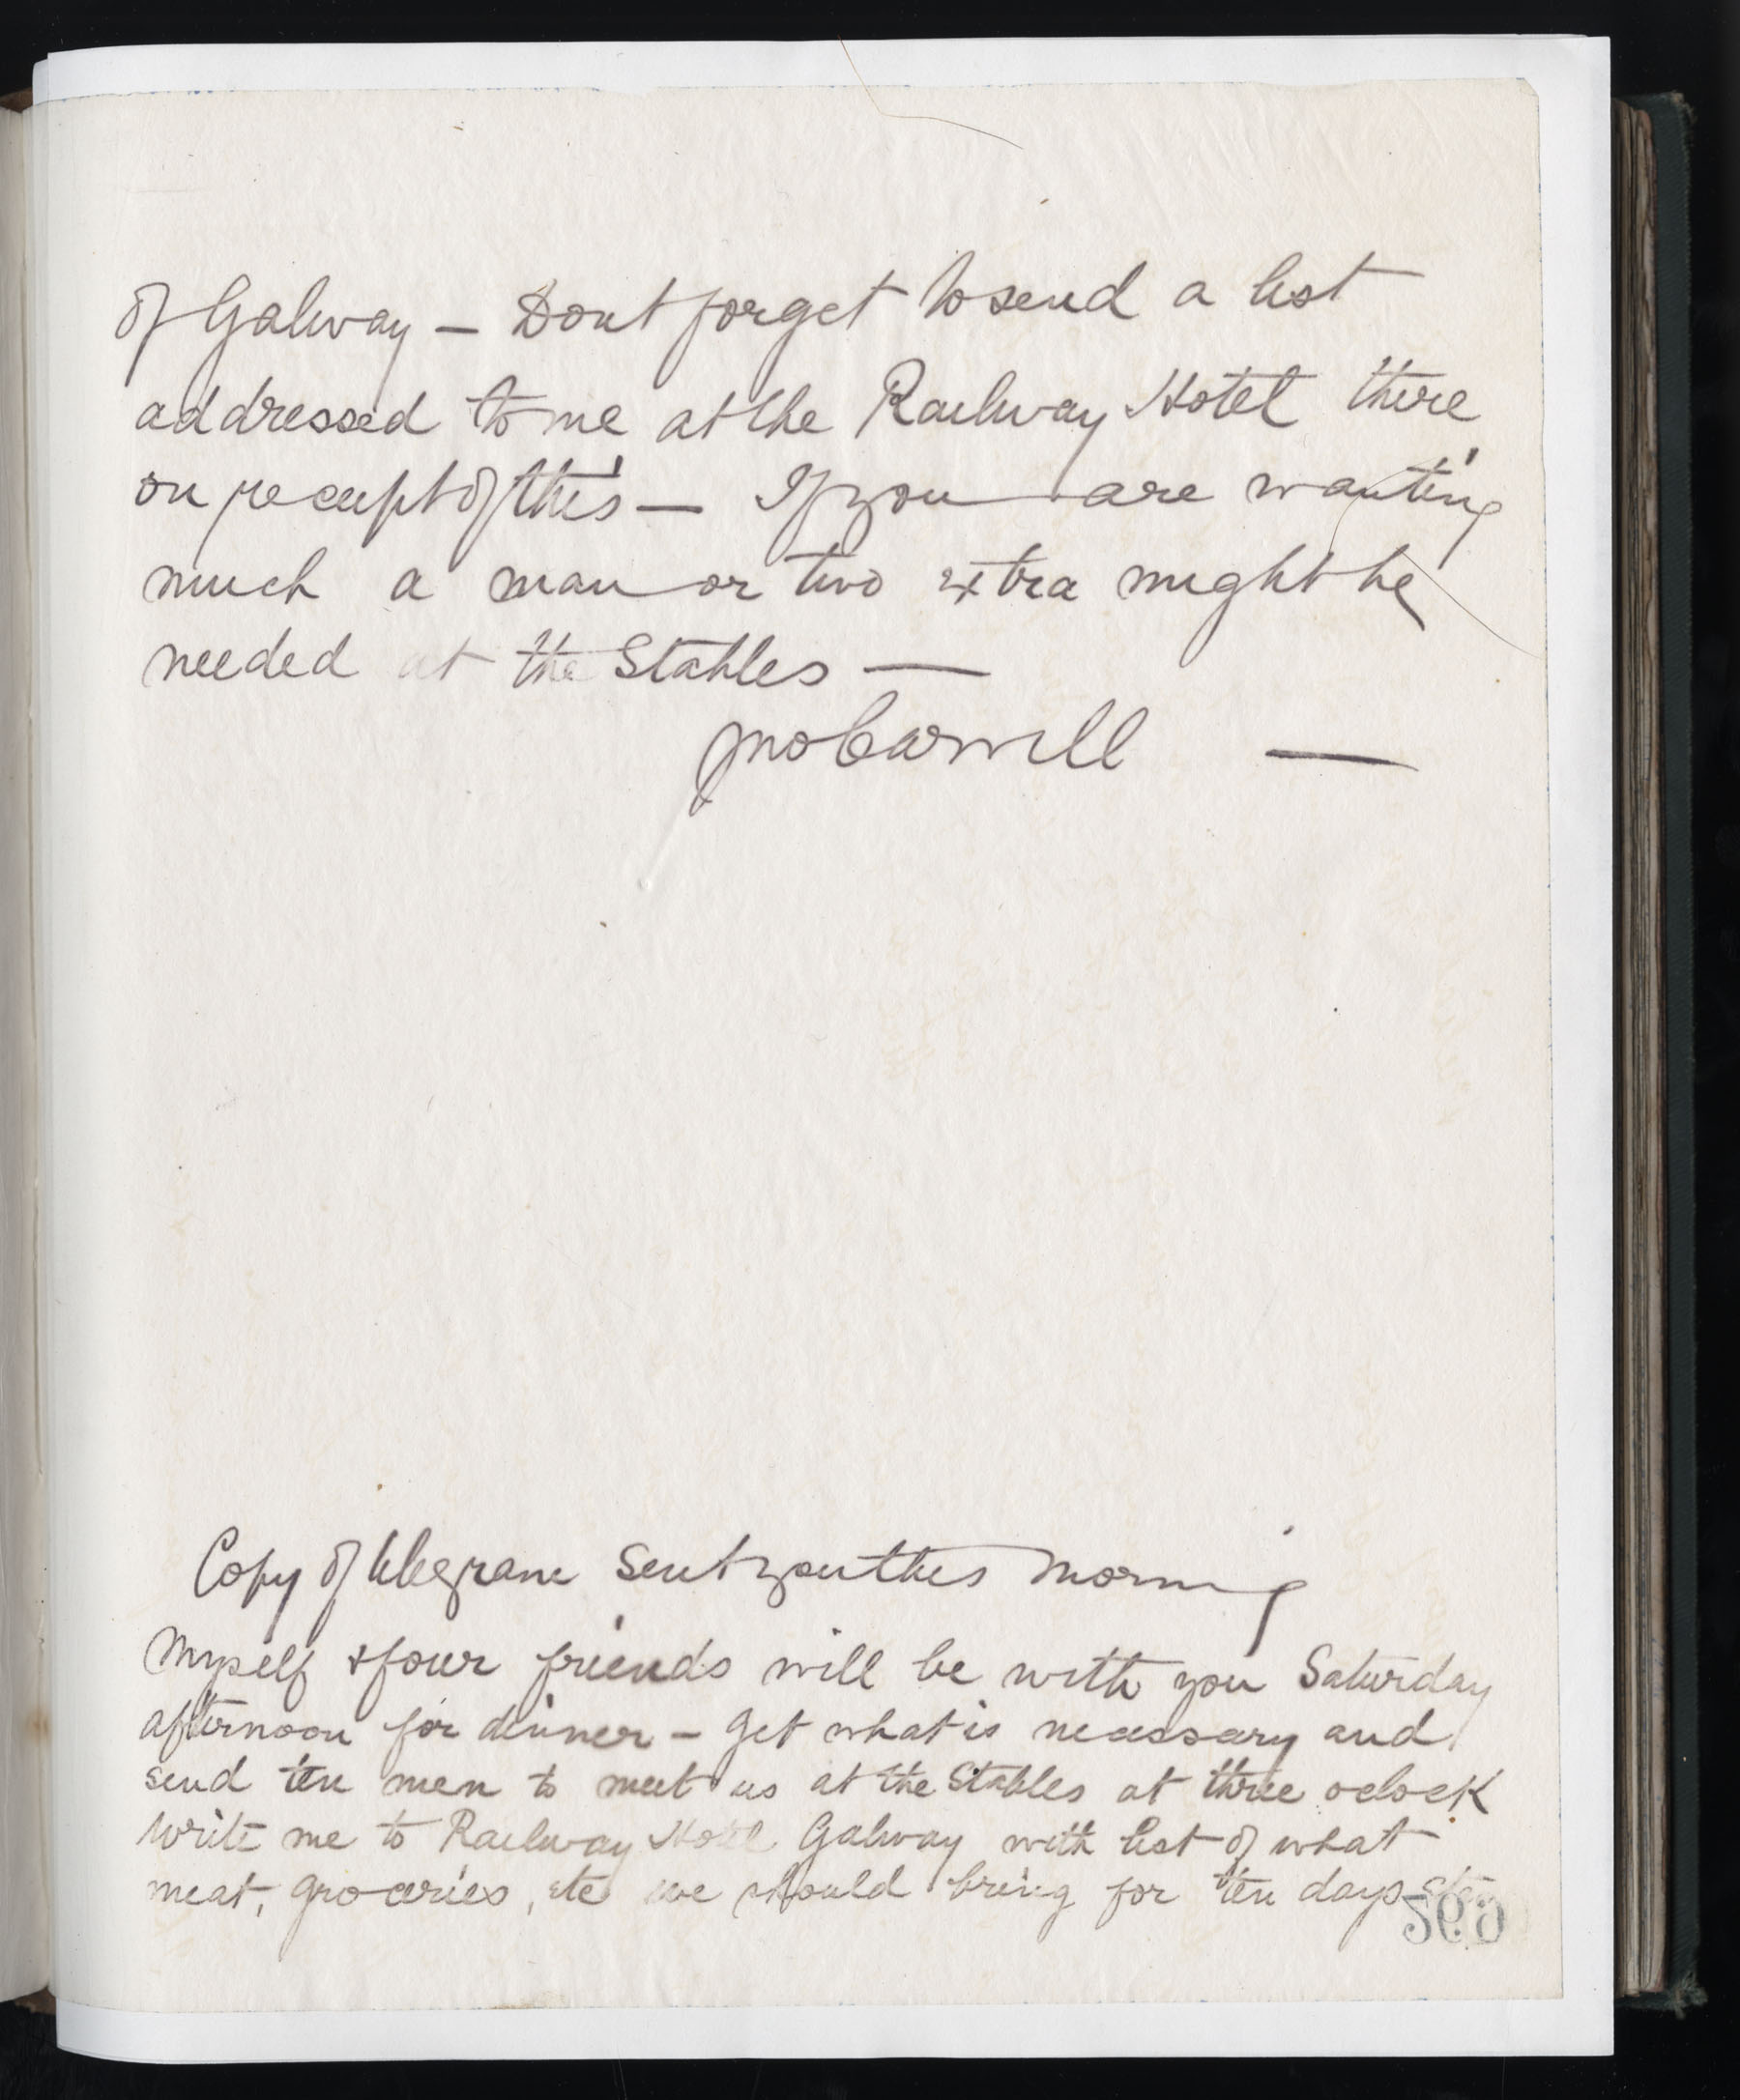 of Galway — Dont forget to send a list
addressed to me at the Railway Hotel there
on receipt of this — If you are wanting
much a man or two extra might be
needed at the Stables —
Jno Carvill —
Copy of telegram sent you this morning
Myself & four friends will be with you Saturday
afternoon for dinner – Get what is necessary and
send ten men to meet us at the Stables at three oclock
Write me to Railway Hotel Galway with list of what
meat, groceries, etc we should bring for ten days